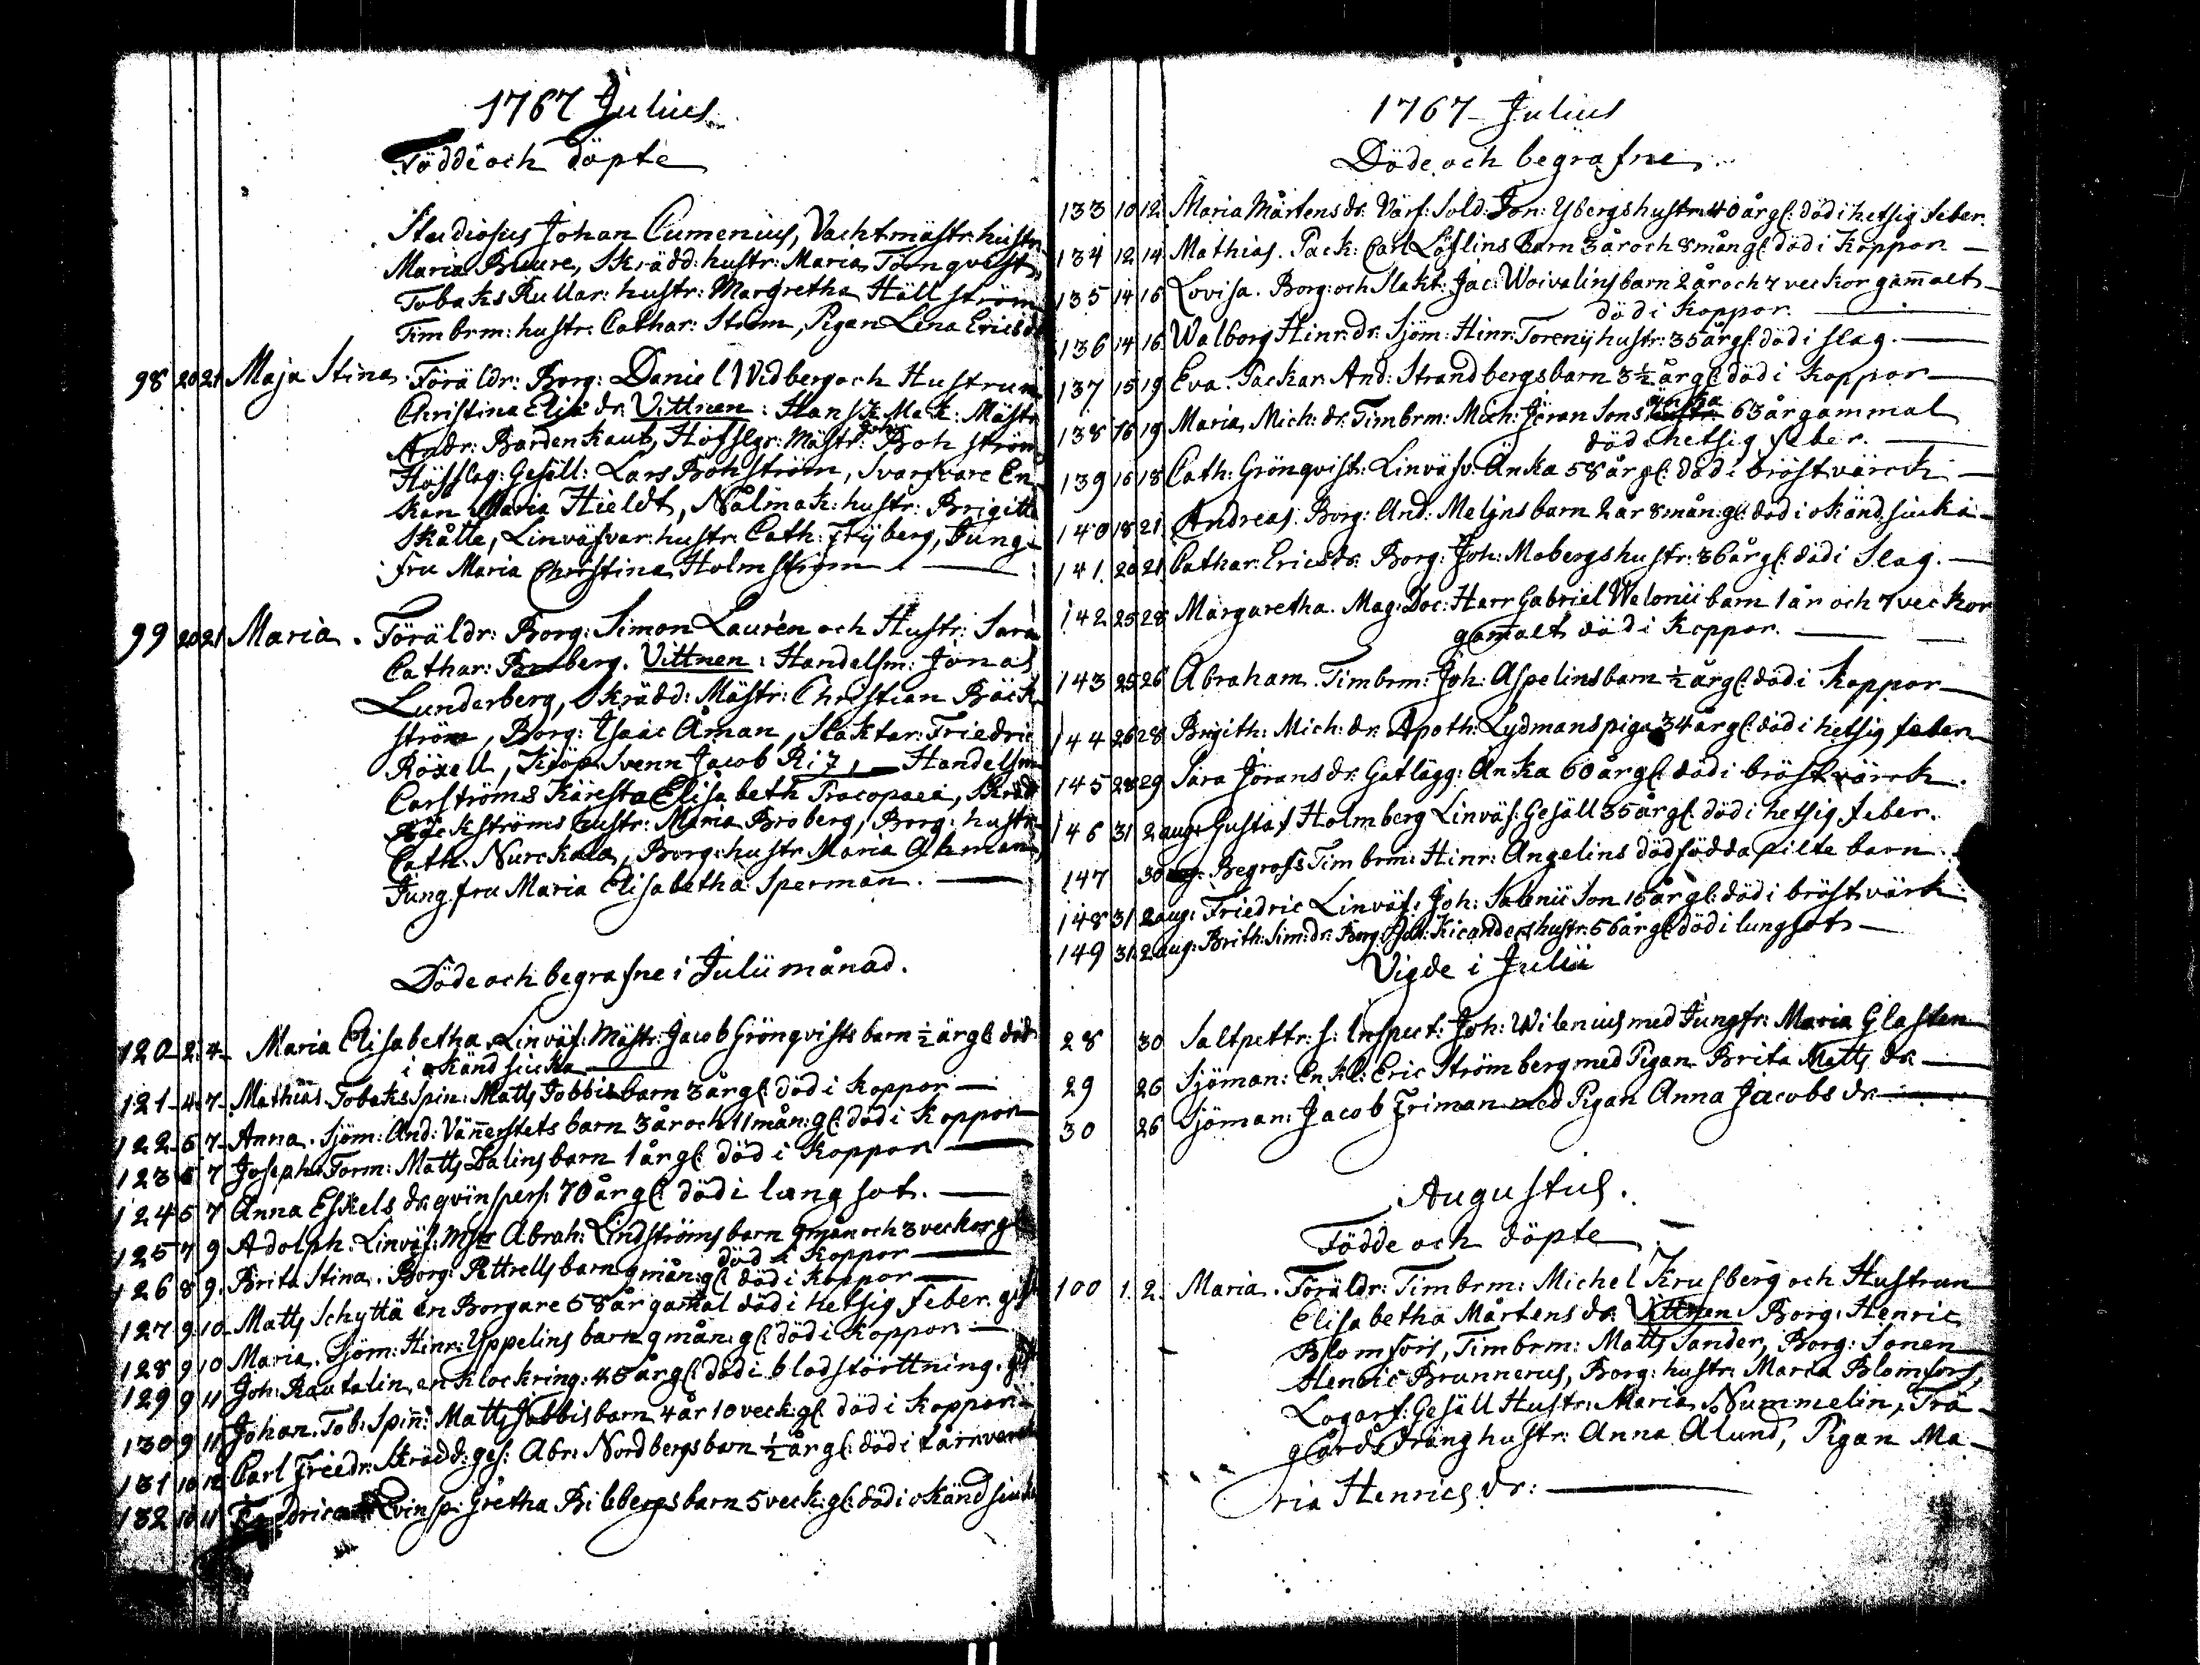 1767 Julius
Födde och döpte
Studiosus Johan Cumenius, Vachtmästr: hustr:
Maria Buure, Skrädd: hustr: Maria Törnqvist,
Tobaks Rullar: hustr: Margretha Hällström
Timbrm: hustr: Cathar: Ström, Pigan Lena Ericsdr
98 20 21 Maja Stina. Föräldr: Borg: Daniel Widberg och Hustrun
Christina Elis dr: Vittnen: Hansk Mak: Mästr
Andr: Bardenkautz, Hofslgr: Mästr: Joh: Bohström
Hofslag: Gesäll: Lars Bohström, Svarfvare En-
kan Maria Hieldt, Nålmak: hustr: Brigitta
Skåtte, Linväfvar: hustr: Cath: Frÿberg, Jung-
fru Maria Christina Holmström.
99 20 21 Maria. Föräldr: Borg: Simon Laurén och Hustr: Sara
Cathar: Broberg. Vittnen: Handelsm: Jonas
Lunderberg, Skrädd: Mästr: Christian Bäck-
ström, Borg: Isaac Åman, Slaktar: Friedric
Röxell, Kiöp Svenn Jacob Riz, Handelsm
Carströms Käresta Elisabeth Procopaea, Skrädd
Bäckströms hustr: Maria Broberg, Borg: hustr
Cath: Nurckala, Borg: hustr Maria Ahman,
Jungfru Maria Elisabetha Sperman.
Döde och begrafne i Julii månad.
120 2 4 Maria Elisabetha Linväf: Mästr: Jacob Grönqvists barn ½ år gl: död
i okänd siucka
121 4 7 Mathias Tobaks Spin: Matts Jobbis barn 3 år gl: död i Koppor
122 6 7 Anna. Sjöm: And: Vännerstets barn 3 år och 11 mån: gl: död i Koppor
123 6 7 Joseph. Torm: Matts Dalins barn 1 år gl: död i Koppor
124 5 7 Anna Eskels dr: qvinspers: 70 år gl: död i lungsot.
125 7 9 Adolph. Linväf: Mstr Abrah: Lindströms barn 9 mån och 3 veckor gl
död i Koppor
126 8 9 Brita Stina. Borg: Pettrells barn 9 mån: gl: död i Koppor
127 9 10 Matts Schyttä en Borgare 58 år gamal död i hetsig Feber. gift
128 9 10 Maria. Sjöm: Hinr: Yppelins barn 9 mån: gl: död i Koppor
129 9 11 Joh: Rautalin, en Klockring: 45 år gl: död i blodstörttning. gift
130 9 11 Johan. Tob: Spin: Matts Jobbis barn 4 år 10 veck: gl: död i Koppor
131 10 12 Carl Friedr: Skrädd: ges: Abr: Nordbergs barn ½ år gl: död i
132 10 11 Qvinsp: Gretha Bilbergs barn 5 veck: gl: död i okänd siucka
1767 Julius
Döde och begrafne
133 10 12 Maria Mårtens dr: Värf: Sold: Jon: Ybergs hustr: 40 år gl: död i hetsig feber.
134 12 14 Mathias. Pack: Carl Löflins barn 3 år och 8 mån gl: död i Koppor
135 14 16 Lovisa. Borg: och Slakt: Jac: Woivalins barn 2 år och 7 veckor gamalt
död i Koppor.
136 14 16 Walborg Hinr: dr: Sjöm: Hinr: Toreny hustr: 35 år gl: död i slag.
137 15 19 Eva. Packar And: Strandbergs barn 3½ år gl: död i Koppor
138 16 19 Maria Mich: dr: Timbrm: Mich: Jöran Sons änka 63 år gammal
död i hetsig feber.
139 16 18 Cath: Grönqvist: Linväfv: Änka 58 år gl: död i bröstvärck
140 18 21 Andreas. Borg: And: Melins barn 2 år 8 mån: gl: död i okänd siucka
141 20 21 Cathar: Erics dr: Borg: Joh: Mobergs hustr: 36 år gl: död i Slag.
142 25 28 Margaretha. Mag: Doc: Herr Gabriel Walonii barn 1 år och 7 veckor
gamalt död i Koppor.
143 25 26 Abraham. Timbrm: Joh: Aspelins barn ½ år gl: död i Koppor
144 26 28 Brigith: Mich: dr: Apoth: Lydmans piga 34 år gl: död i hetsig feber
145 28 29 Sara Jörans dr: Gatlägg: Änka 60 år gl: död i bröstvärck.
146 31 2 aug: Gustaf Holmberg Linväf: Gesäll 35 år gl: död i hetsig feber.
147 30 Begrofs Timbrm: Hinr: Angelins dödfödda pilte barn.
148 31 2 aug: Friedric Linväf: Joh: Salenii Son 15 år gl: död i bröstvärk
149 31 2 aug: Brith: Sim: dr: Borg: Joh: Kicanders hustr: 56 år gl: död i lungsot
Vigde i Julii
28 30 Saltpettr: s: Inspect: Joh: Wilenius med Jungfr: Maria Glasten
29 26 Sjöman: Enkl: Eric Strömberg med Pigan Brita Matts dr.
30 26 Sjöman: Jacob Friman med Pigan Anna Jacobs dr.
Augustus.
Födde och döpte
100 1 2 Maria. Föräldr: Timbrm: Michel Krusberg och Hustrun
Elisabetha Mårtens dr: Vittnen Borg: Henric
Blomfors, Timbrm: Matts Sander, Borg: Sonen
Henric Brunnerus, Borg: hustr: Maria Blomfors,
Logarf: Gesäll Hustr: Maria Nummelin, Trä-
gårds dräng hustr: Anna Alund, Pigan Ma-
ria Henrics dr: